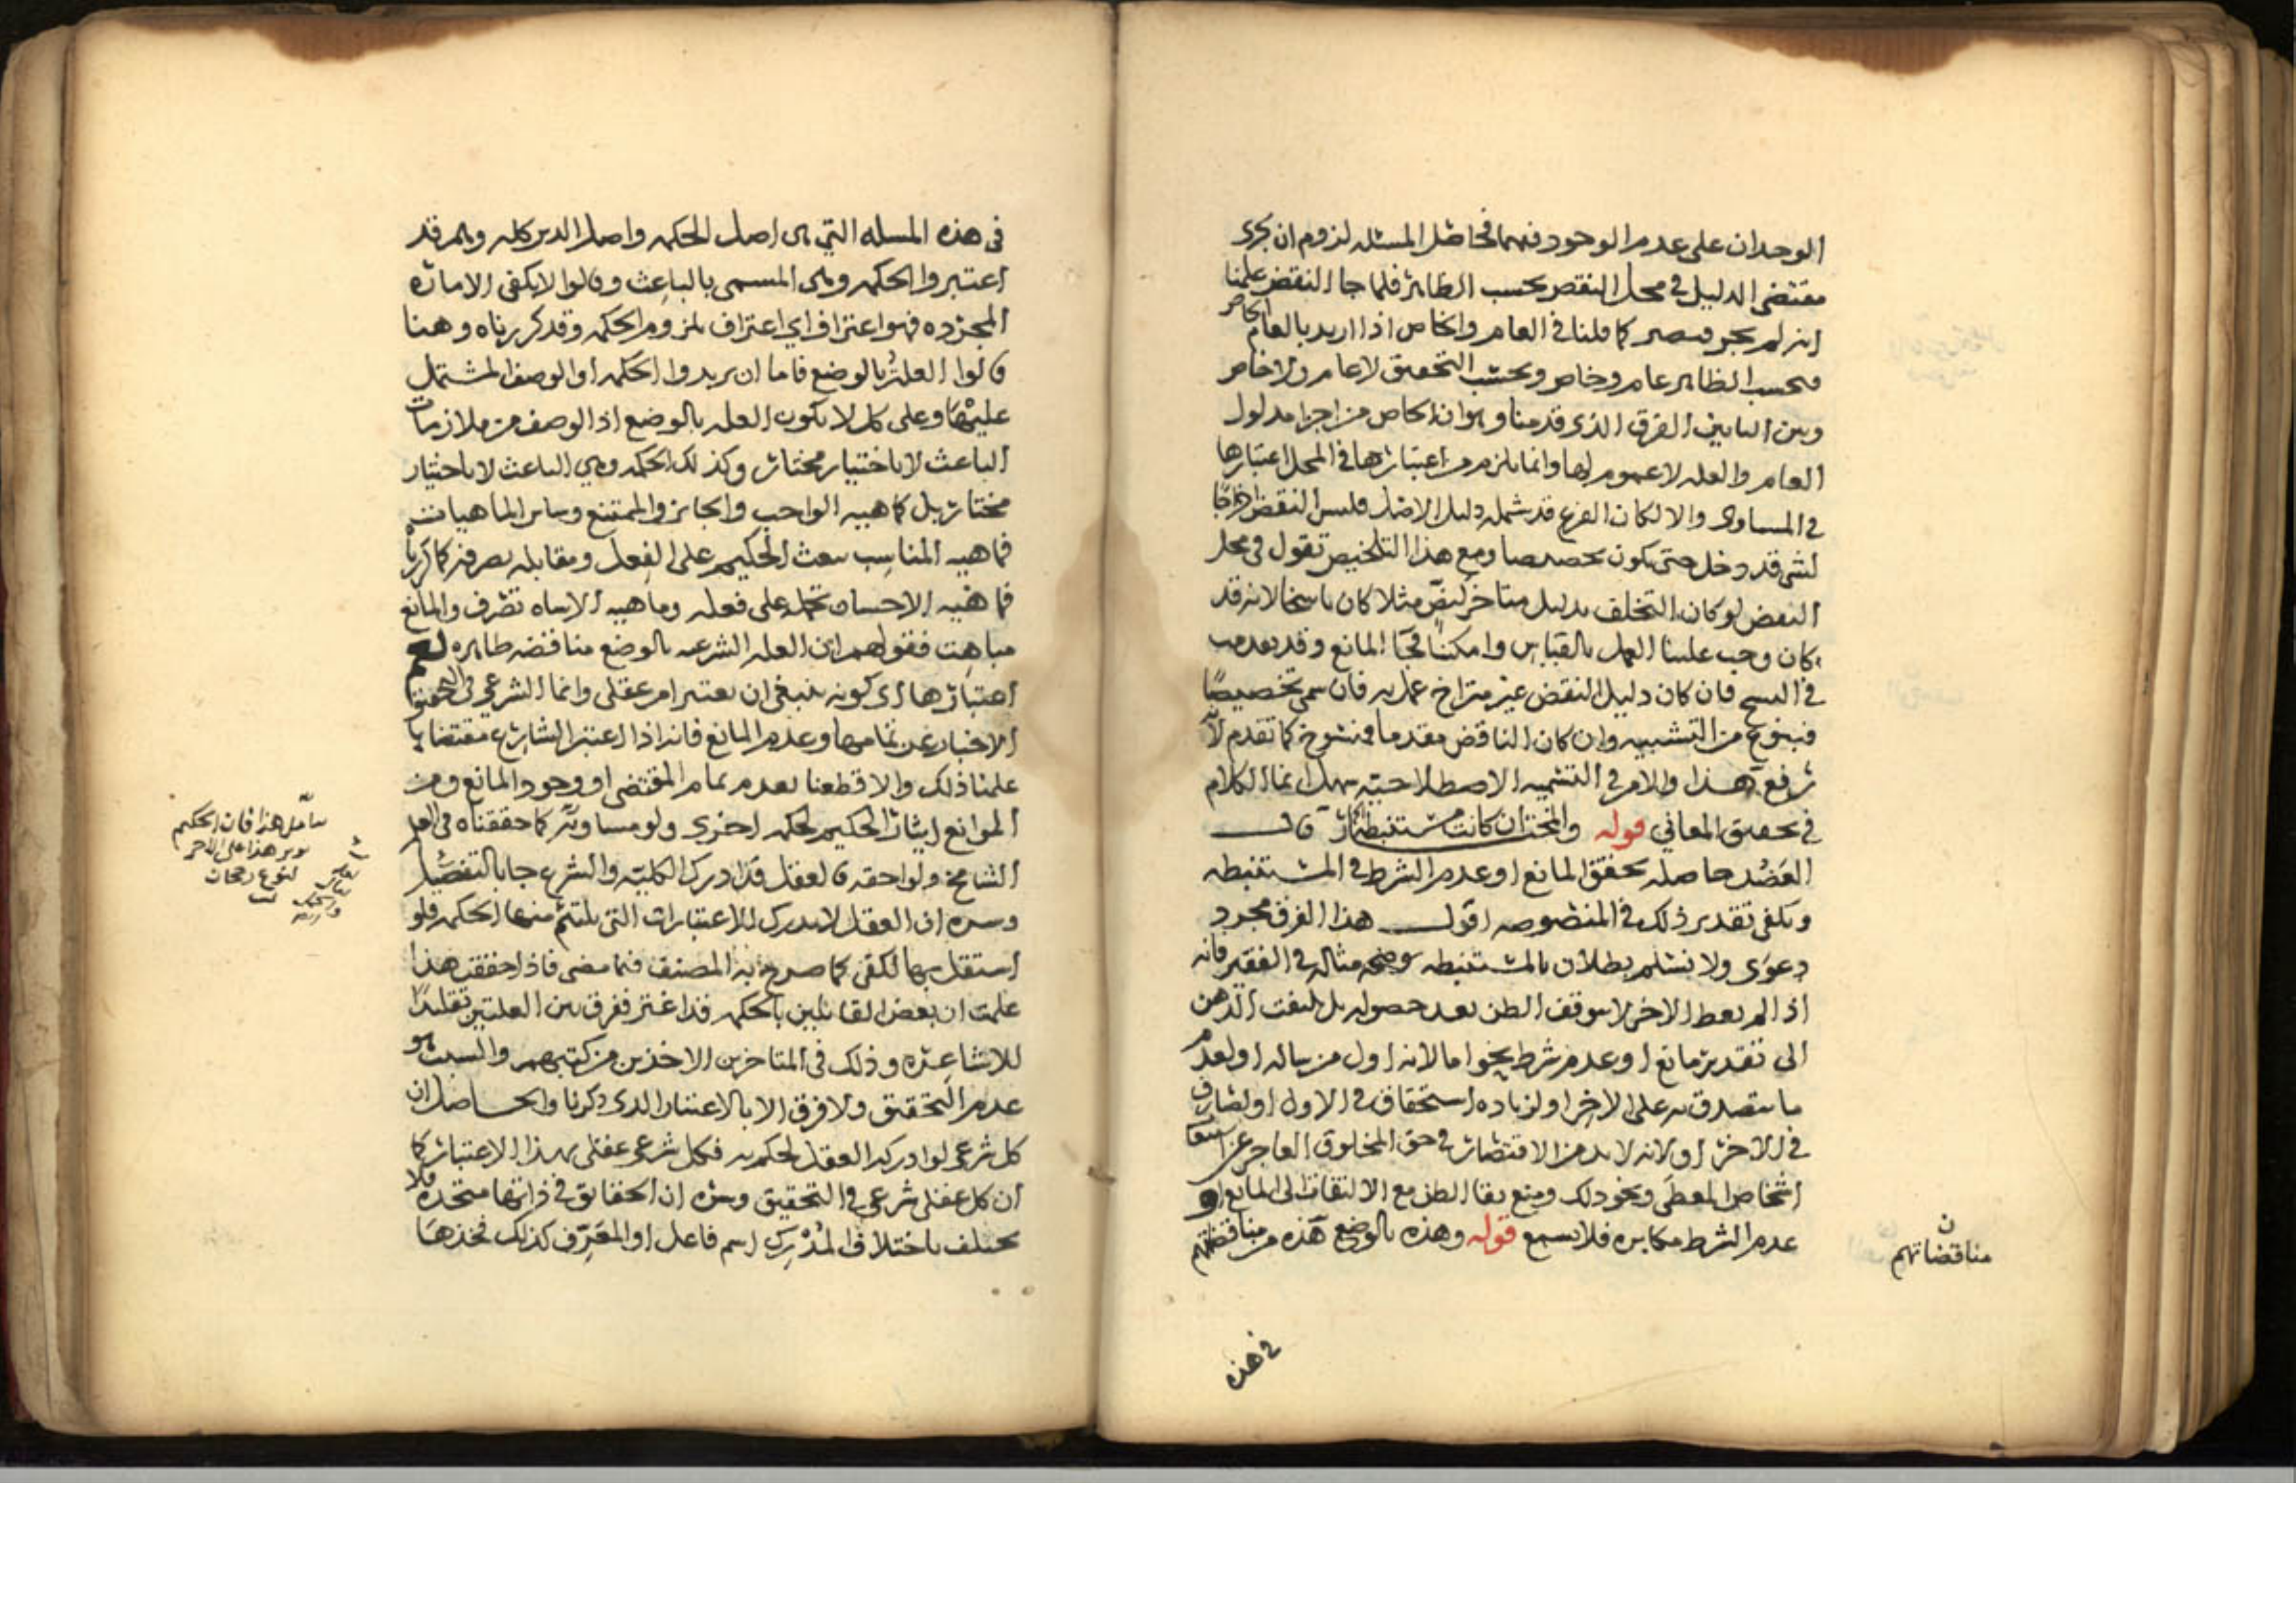 الوجدان على عدم الوجود فهما فحاصل المسئله لزوم ان يجرى
مقتضى الدليل في محل النقض بحسب الظاهر فلما جا النقض علمنا
انه لم يجر فيصير كما قلنا في العام والخاص اذا اريد بالعام الخاص
فبحسب الظاهر عام وخاص وبحسب التحقيق لا عام ولا خاص
وبين البابين الفرق الذى قدمنا وهو ان الخاص من اجزا مدلول
العام والعله لا عموم لها وانما يلزم من اعتبارها في المحل اعتبارها
في المساوى والا لكان الفرع قد شمله دليل الاصل فليس النقض اخراجا
لشى قد دخل حتى يكون تخصيصا ومع هذا التلخيص تقول في محل
النقض لو كان التخلف بدليل متاخر كنص مثلا كان ناسخا لانه قد
كان وجب علينا العمل بالقياس وامكننا المانع وقد تقدمت
في النسخ فان كان دليل النقض غير متراخ عمل به فان سمى تخصيصا
فبنوع من التشبيه وان كان الناقض مقدما فمنسوخ كما تقدم لانه
رفع هذا والامر في التسميه الاصطلاحيه سهل انما الكلام
في تحقيق المعاني قوله والمختار ان كانت مستنبطة قال
العضد حاصله تحقق المانع او عدم الشرط في المستنبطه
ويكفى تقدير ذلك في المنصوصه اقول هذا الفرق مجرد
دعوى ولا نسلم بطلان بالمستنبطه يوضحه مثاله في الفقير فانه
اذا لم يعط الاخر لا يتوقف الظن بعد حصوله بل يلتفت الذهن
الى تقدير مانع او عدم شرط بنحو اما لانه اول من ساله او لعدم
ما يتصدق به على الاخر او لزياده استحقاق في الاول او لصارف
في الاخر او لانه لا بد من الاقتصار في حق المخلوق العاجز عن
اشخاص المعطى ونحو ذلك ومنع بقا الظن مع الالتفات الى المانع او
عدم الشرط مكابره فلا يسمع قوله وهذه بالوضع هذه من مناقضتهم
ن
مناقضاتهم
في هذه
في هذه المسله التي هى اصل الحكمه واصل الدين كله وهم قد
اعتبروا الحكمه وهى المسمى بالباعث وقالوا لا يكفى الاماره
المجرده فهو اعتراف اي اعتراف بلزوم الحكمه وقد كررناه وهنا
قالوا العله بالوضع فاما ان يريدوا الحكمه او الوصف المشتمل
عليها وعلى كل لا يكون العله بالوضع اذ الوصف من ملازمات
الباعث لا باختيار مختار وكذلك الحكمه وهي الباعث لا باختيار
مختار بل كماهيه الواجب والجائز والممتنع وسائر الماهيات
فماهيه المناسب تبعث الحكيم على الفعل ومقابله يصرفه كما كررناه
فماهيه الاحسان تحمله على فعله وماهيه الاساه تصرف والمانع
مباهت فقولهم ان العله الشرعيه بالوضع مناقضه ظاهره نعم
اعتبارها اى كونه ينبغي ان يعتبر امر عقلى وانما الشرعى في التحقيق
الاخبار عن تمامها وعدم المانع فانه اذا اعتبر الشارع مقتضاها
علمنا ذلك والا قطعنا بعدم تمام المقتضى او وجود المانع ومن
الموانع ايثار الحكيم لحكمه اخرى ولو مساويه كما حققناه في العلم
الشامخ ولواحقه فالعقل قد ادرك الكليه والشرع جا بالتفصيل
وسره ان العقل لا يدرك الاعتبارات التى يلتئم منها الحكمه فلو
استقل بها لكفى كما صرح به المصنف فيما مضى فاذا حققت هذا
علمت ان بعض القائلين بالحكمه قد اغتر ففرق بين العلتين تقليدا
للاشاعره وذلك في المتاخرين الاخذين من كتبهم والسبب هو
عدم التحقيق ولا فرق الا بالاعتبار الذى ذكرنا والحاصل ان
كل شرعى لو ادركه العقل لحكم به فكل شرعى عقلى بهذا الاعتبار كما
ان كل عقلى شرعى في التحقيق وسره ان الحقائق في ذاتها متحده فلا
يختلف باختلاف المدرك اسم فاعل او المعرف كذلك فخذها
تامل هذا فان الحكيم
يوثر هذا على الاخر
لنوع رجحان